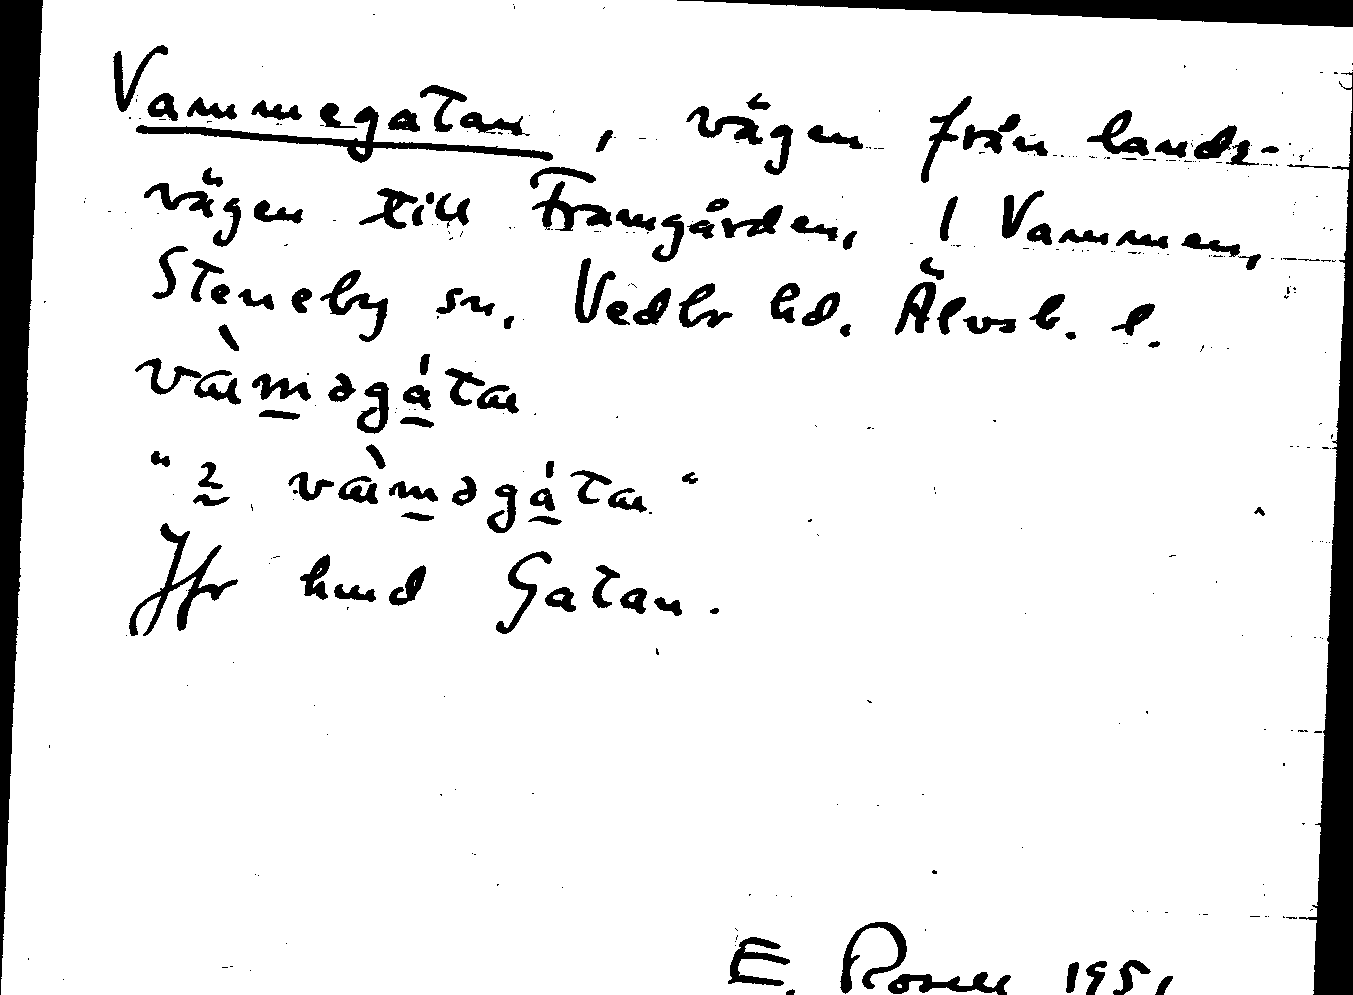 Vammegatan, vägen från lands-
vägen till Framgården, 1 Vammen,
Steneby sn. Vedbr hd. Älvsb. l.
vàməgáta
"2 vàməgáta"
Jfr hmd Gatan.
E. Rosell 1951